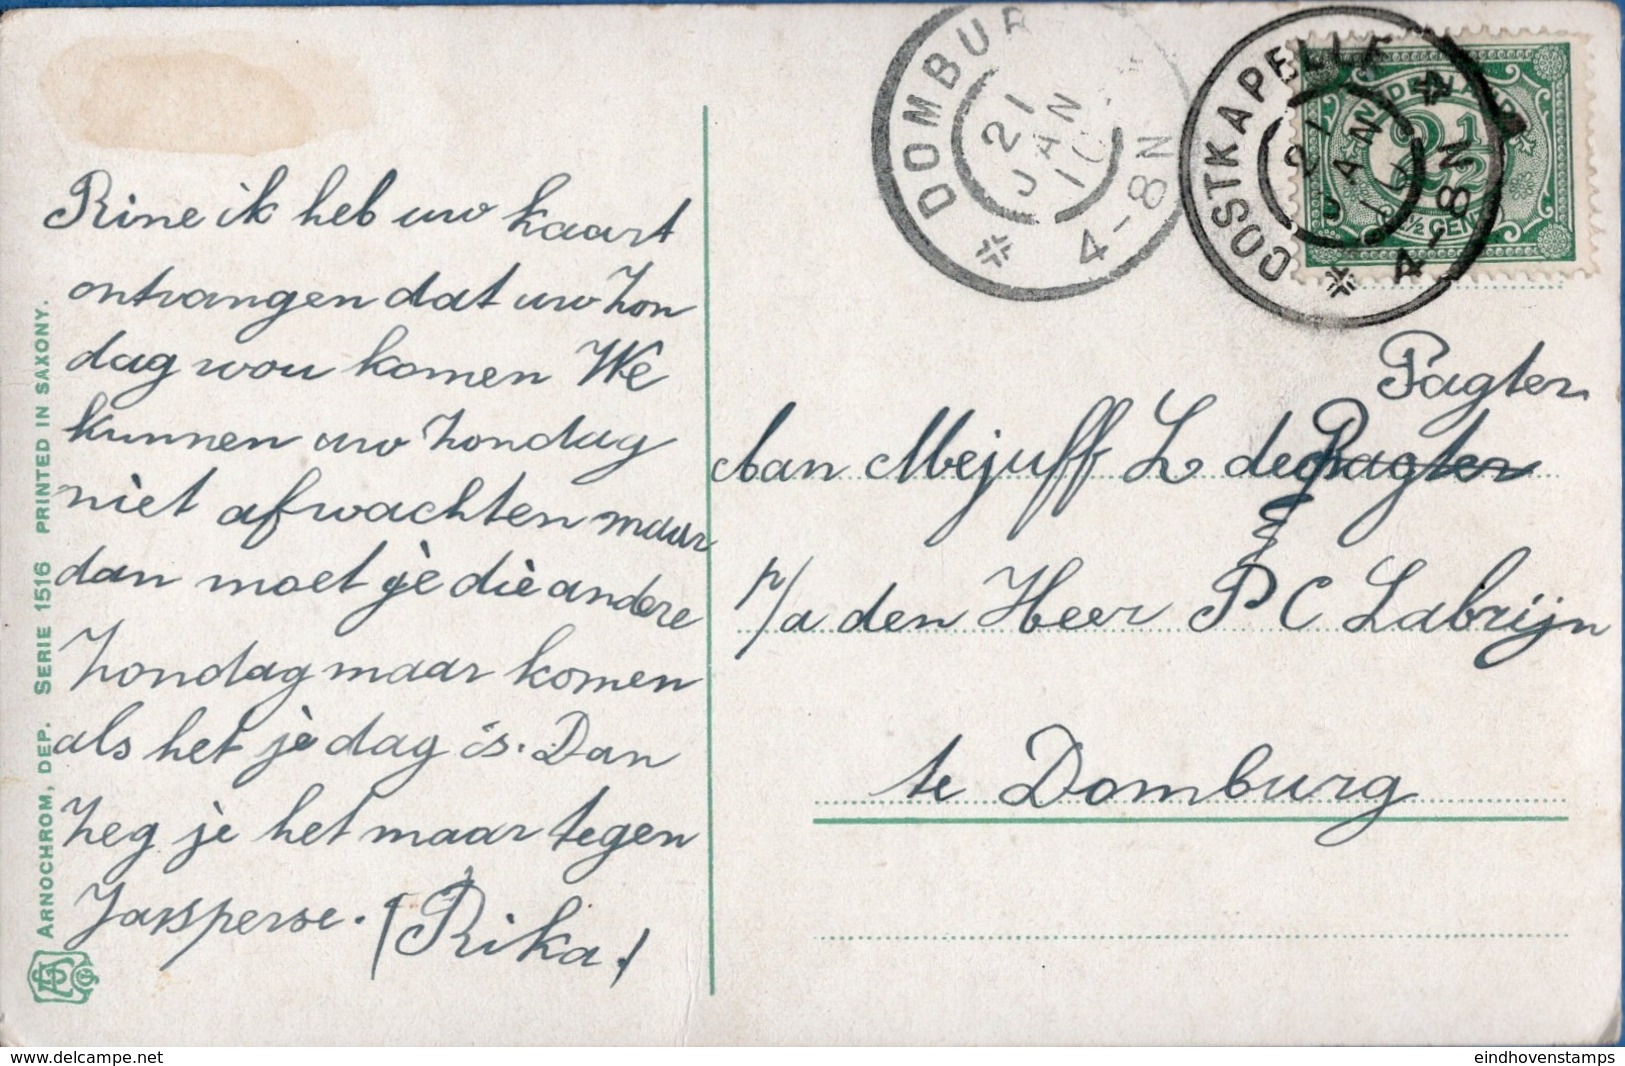 DOMBUR
21
JAN
10
4-8N
OOSTKAPELLE
21
JAN
10
4-8N
NEDERLAND
2 1/2
2 1/2 CENT
Rine ik heb uw kaart
ontvangen dat uw Zon
dag wou komen We
kunnen uw Zondag
niet afwachten maar
dan moet je die andere
Zondag maar komen
als het je dag is. Dan
Zeg je het maar tegen
(Rika)
Pagter
Aan Mejuff L de Pagter
p/a den Heer P C Labrijn
te Domburg
ARNOCHROM, DEP. SERIE 1516 PRINTED IN SAXONY.
www.delcampe.net
eindhovenstamps